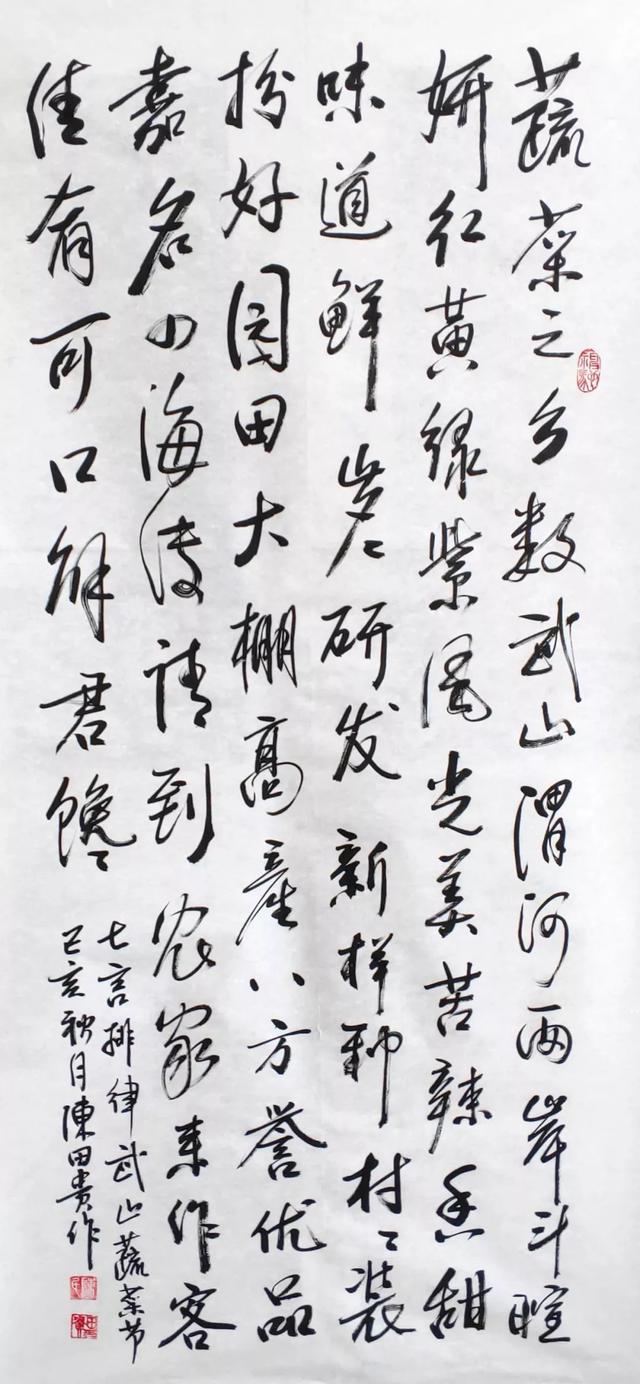 蔬菜之乡数武山渭河两岸斗暄
妍红黄绿紫风光美苦辣香甜
味道鲜岁々研发新样种村々装
扮好园田大棚高產八方誉优品
嘉名四海传请到农家来作客
佳肴可口解君馋
七言排律武山蔬菜节
己亥秋月陳田贵作